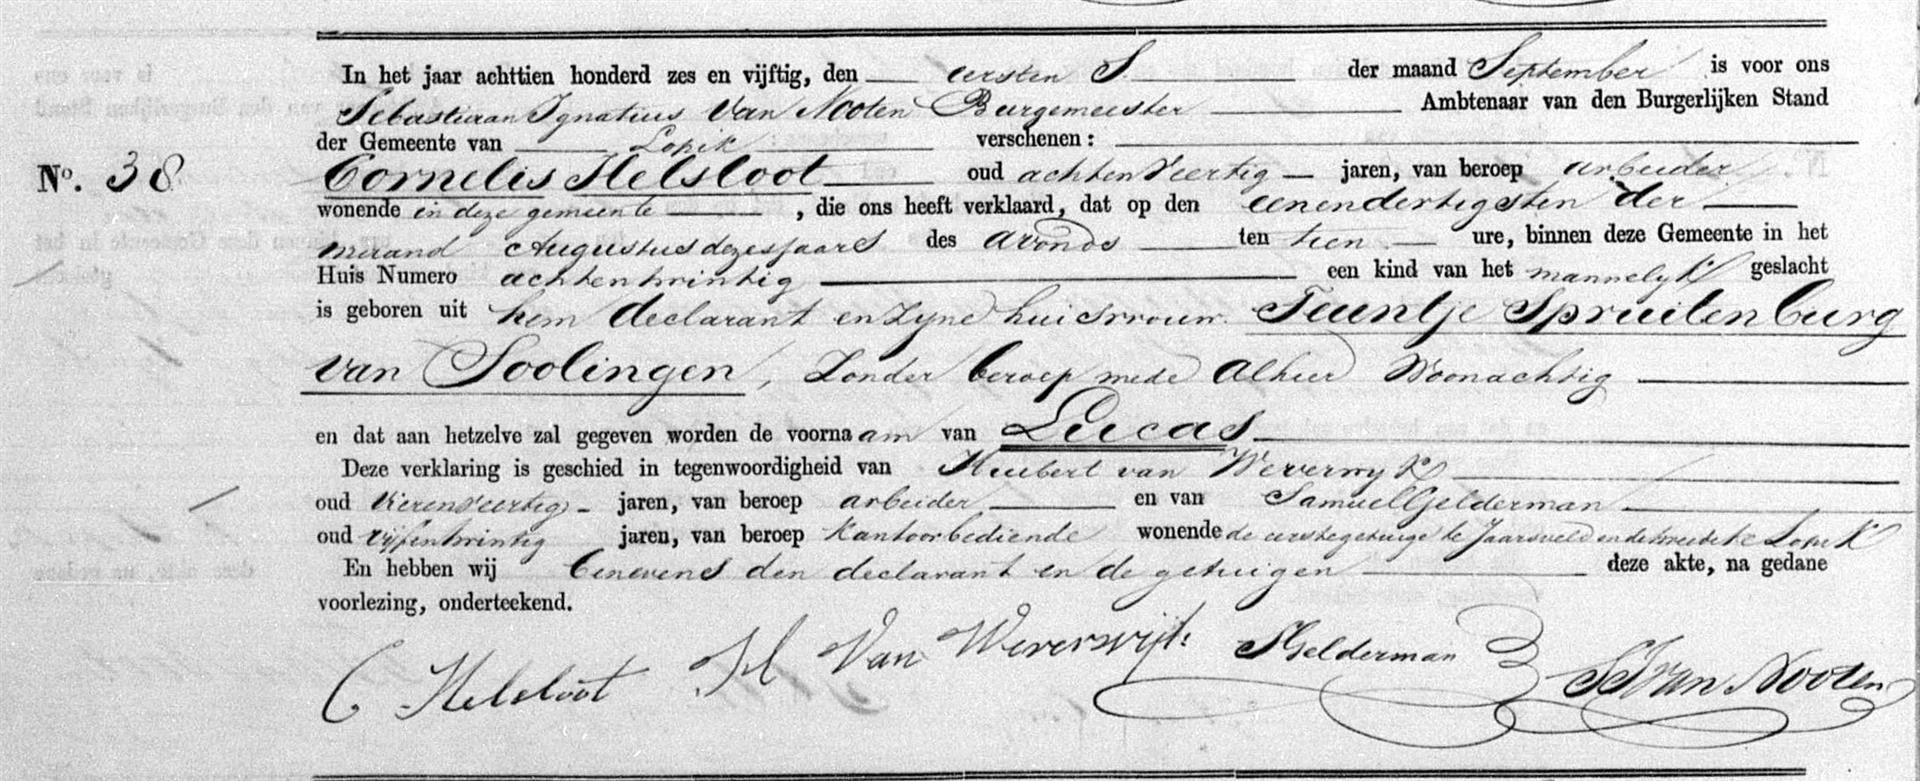 In het jaar achttien honderd zes en vijftig, den eersten der maand September is voor ons
Sebastiaan Ignatius Van Nooten Burgemeester Ambtenaar van den Burgerlijken Stand
der Gemeente van Lopik verschenen:
No. 38 Cornelis Helsloot oud achtenveertig jaren, van beroep arbeider
wonende in deze gemeente, die ons heeft verklaard, dat op den eenendertigsten der
maand Augustus dezes jaars des avonds ten tien ure, binnen deze Gemeente in het
Huis Numero achtentwintig een kind van het mannelyk geslacht
is geboren uit hem declarant en zyne huisvrouw Teuntje Spruitenburg
van Soolingen, zonder beroep mede alhier Woonachtig
en dat aan hetzelve zal gegeven worden de voornaam van Lucas
Deze verklaring is geschied in tegenwoordigheid van Huibert van Weverwyk
oud vierenveertig jaren, van beroep arbeider en van Samuel Gelderman
oud vyfentwintig jaren, van beroep Kantoorbediende wonende de eerste getuige te Jaarsveld en de tweede te Lopik
En hebben wij benevens den declarant en de getuigen deze akte, na gedane
voorlezing, onderteekend.
C Helsloot H Van Weverwijk SGelderman SIVan Nooten